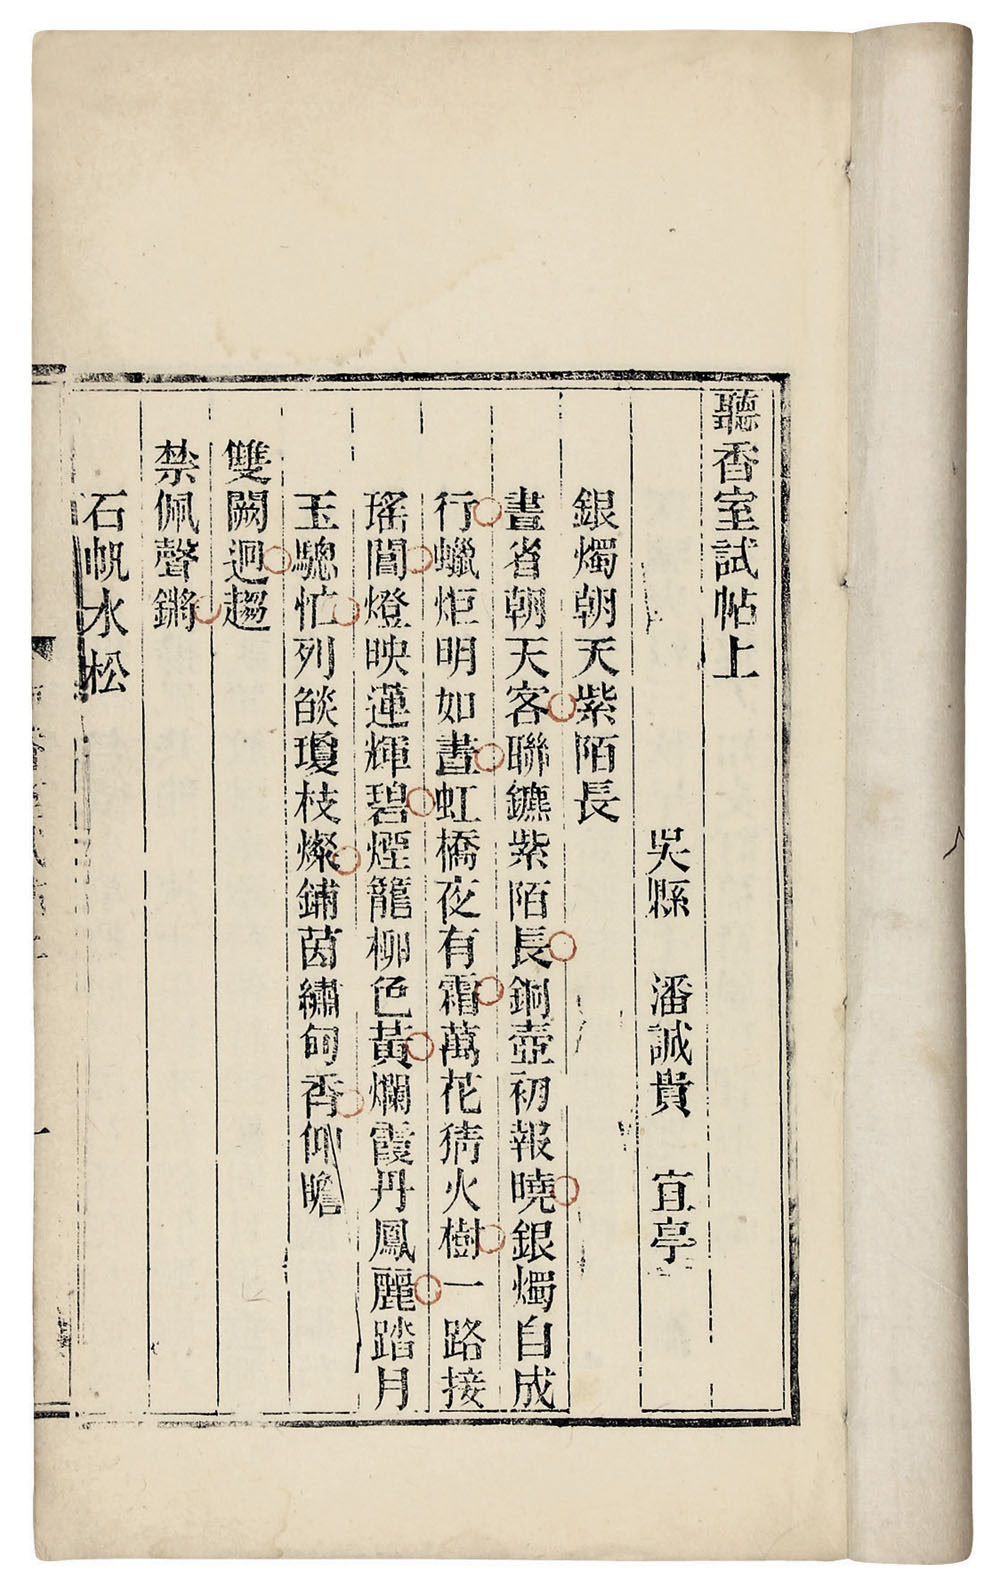 聽香室試帖上
吳縣　潘誠貴　宜亭
銀燭朝天紫陌長
晝省朝天客聯鑣紫陌長銅壺初報曉銀燭自成
行蠟炬明如晝虹橋夜有霜萬花猜火樹一路接
瑤閶燈映蓮輝碧煙籠柳色黃爛霞丹鳳麗踏月
玉驄忙列燄瓊枝燦鋪茵繡甸香仰瞻
雙闕迴趨
禁佩聲鏘
石帆水松